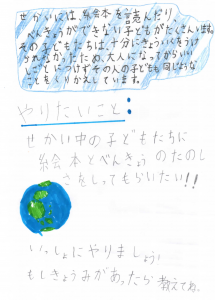 せかいには、絵本を読んだり
べんきょうができない子どもがたくさんいます。
その子どもたちは、十分にきょういくをうけ
られなかったため、大人になってからいい
しごとにつけずその人の子どもも同じような
ことをくりかえしています。
やりたいこと:
せかい中の子どもたちに
絵本とべんきょうのたのし
さをしってもらいたい!!
いっしょにやりましょう。
もしきょうみがあったら教えてね。